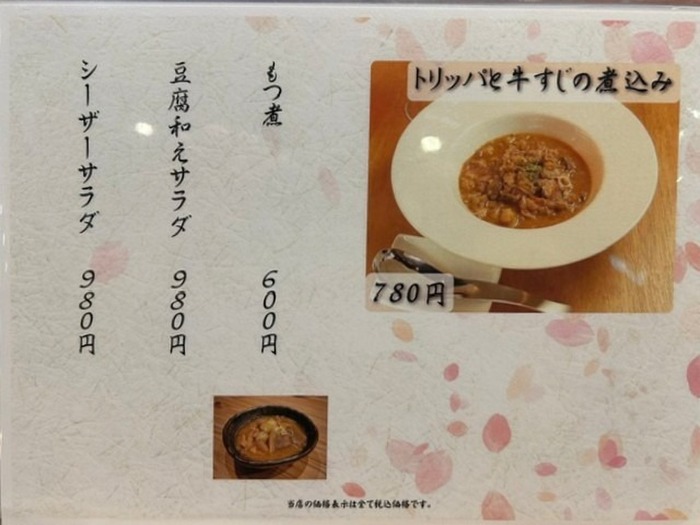 トリッパと牛すじの煮込み
780円
もつ煮 600円
豆腐和えサラダ 980円
シーザーサラダ 980円
当店の価格表示は全て税込価格です。